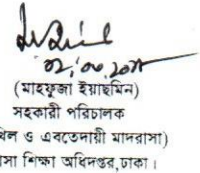 (মাহফুজা ইয়াছমিন)
সহকারী পরিচালক
ও এবতেদায়ী মাদরাসা)
শিক্ষা অধিদপ্তর,ঢাকা।